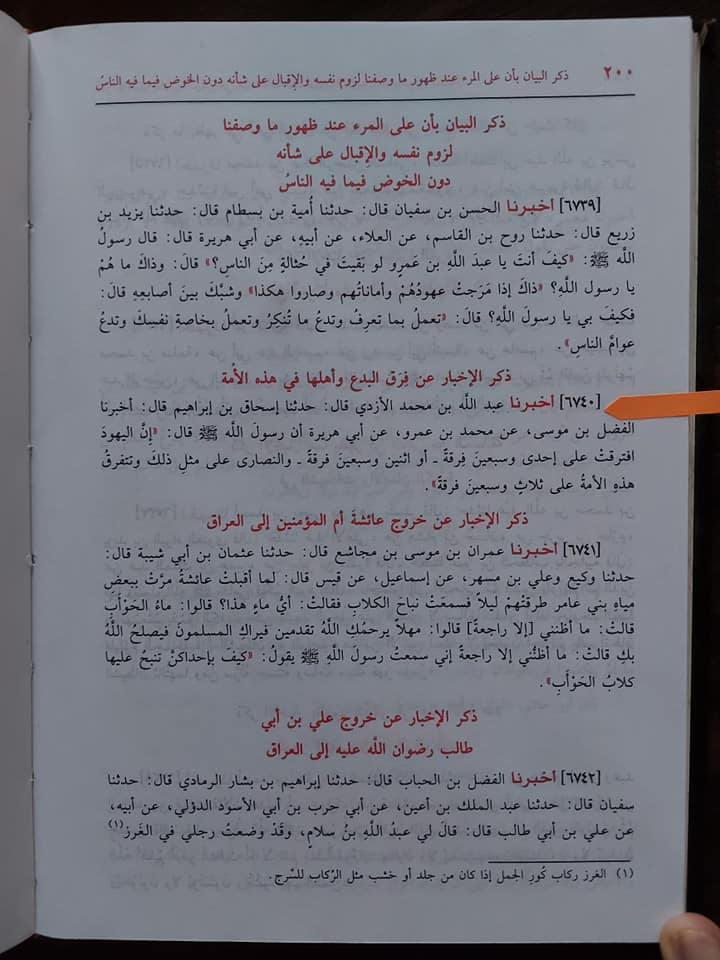 ٢٠٠ ذكر البيان بأن على المرء عند ظهور ما وصفنا لزوم نفسه والإقبال على شأنه دون الخوض فيما فيه الناسُ
ذكر البيان بأن على المرء عند ظهور ما وصفنا
لزوم نفسه والإقبال على شأنه
دون الخوض فيما فيه الناسُ
[٦٧٣٩] أخبرنا الحسن بن سفيان قال: حدثنا أمية بن بسطام قال: حدثنا يزيد بن
زريع قال: حدثنا روح بن القاسم، عن العلاء، عن أبيه، عن أبي هريرة قال: قال رسولُ
الله ﷺ: «كيفَ أنتَ يا عبدَ اللَّهِ بن عَمرٍو لو بَقيتَ في حُثالةٍ مِنَ الناسِ؟» قالَ: وذاكَ ما هُمْ
يا رسول اللَّهِ؟ «ذاكَ إذا مَرَجتْ عهودُهُمْ وأماناتُهم وصاروا هكذا» وشبَّكَ بينَ أصابعِهِ قالَ:
فكيفَ بي يا رسولَ اللَّهِ؟ قالَ: «تعملُ بما تعرِفُ وتدعُ ما تُنكِرُ وتعملُ بخاصةِ نفسِكَ وتدعُ
عوامَّ الناسِ».
ذكر الإخبار عن فِرَق البدع وأهلها في هذه الأُمة
[٦٧٤٠] أخبرنا عبد اللَّه بن محمد الأزدي قال: حدثنا إسحاق بن إبراهيم قال: أخبرنا
الفضل بن موسى، عن محمد بن عمرو، عن أبي هريرة أن رسولَ اللَّهِ ﷺ قال: «إنَّ اليهودَ
افترقتْ على إحدى وسبعينَ فِرقةً ـ أو اثنين وسبعينَ فرقةً ـ والنصارى على مثلِ ذلكَ وتتفرقُ
هذهِ الأمةُ على ثلاثٍ وسبعينَ فرقةً».
ذكر الإخبار عن خروج عائشةَ أم المؤمنين إلى العراق
[٦٧٤١] أخبرنا عمران بن موسى بن مجاشع قال: حدثنا عثمان بن أبي شيبة قال:
حدثنا وكيع وعلي بن مسهر، عن إسماعيل، عن قيس قال: لما أقبلتْ عائشةُ مرَّتْ ببعضِ
مياهِ بني عامر طرقتْهمْ ليلاً فسمعَتْ نباحَ الكلابِ فقالتْ: أيُّ ماءٍ هذا؟ قالوا: ماءُ الحَوْأَبِ
قالتْ: ما أظنني [إلا راجعةً] قالوا: مهلاً يرحمُكِ اللَّهُ تقدمين فيراكِ المسلمونَ فيصلحُ اللَّهُ
بكِ قالتْ: ما أظنُّني إلا راجعةً إني سمعتُ رسولَ اللَّهِ ﷺ يقولُ: «كيفَ بإحداكنَّ تنبحُ عليها
كلابُ الحَوْأَبِ».
ذكر الإخبار عن خروج علي بن أبي
طالب رضوان اللَّه عليه إلى العراق
[٦٧٤٢] أخبرنا الفضل بن الحباب قال: حدثنا إبراهيم بن بشار الرمادي قال: حدثنا
سفيان قال: حدثنا عبد الملك بن أعين، عن أبي حرب بن أبي الأسود الدؤلي، عن أبيه،
عن علي بن أبي طالب قال: قالَ لي عبدُ اللَّهِ بنُ سلامٍ، وقَدْ وضعتُ رجلي في الغَرزِ(١)
(١) الغرز ركاب كُورِ الجمل إذا كان من جلد أو خشب مثل الرُكاب للسَّرج.